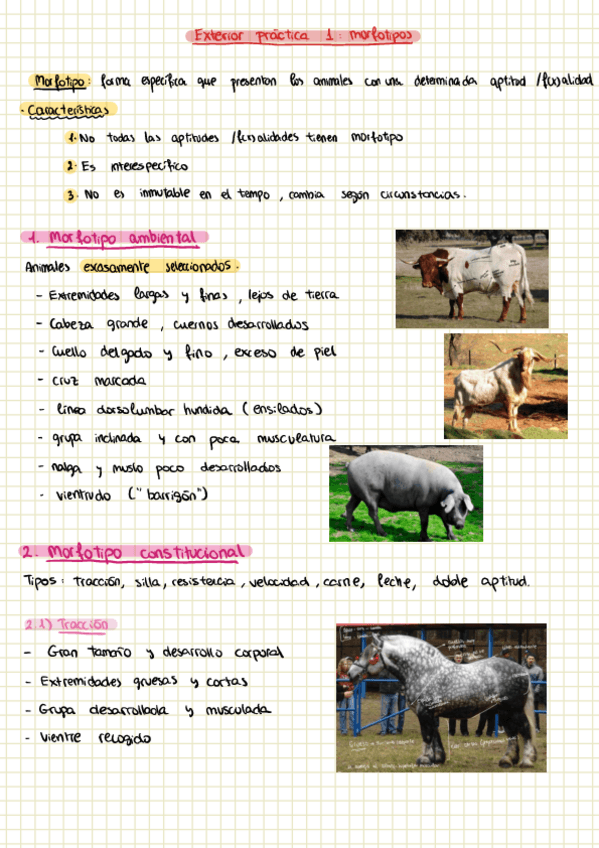 Exterior práctica 1: morfotipos
Morfotipo: forma específica que presentan los animales con una determinada aptitud /f(x)alidad
· Características
1. No todas las aptitudes /f(x)alidades tienen morfotipo
2. Es interespecífico
3. No es inmutable en el tempo, cambia según circunstancias.
1. Morfotipo ambiental
Animales escasamente seleccionados.
- Extremidades largas y finas, lejos de tierra
- Cabeza grande, cuernos desarrollados
- Cuello delgado y fino, exceso de piel
- Cruz marcada
- línea dorsolumbar hundida (ensilados)
- grupa inclinada y con poca musculatura
- nalga y muslo poco desarrollados
- vientrudo ("barrigón")
2. Morfotipo constitucional
Tipos: tracción, silla, resistencia, velocidad, carne, leche, doble aptitud.
2.1) Tracción
- Gran tamaño y desarrollo corporal
- Extremidades gruesas y cortas
- Grupa desarrollada y musculada
- Vientre recogido